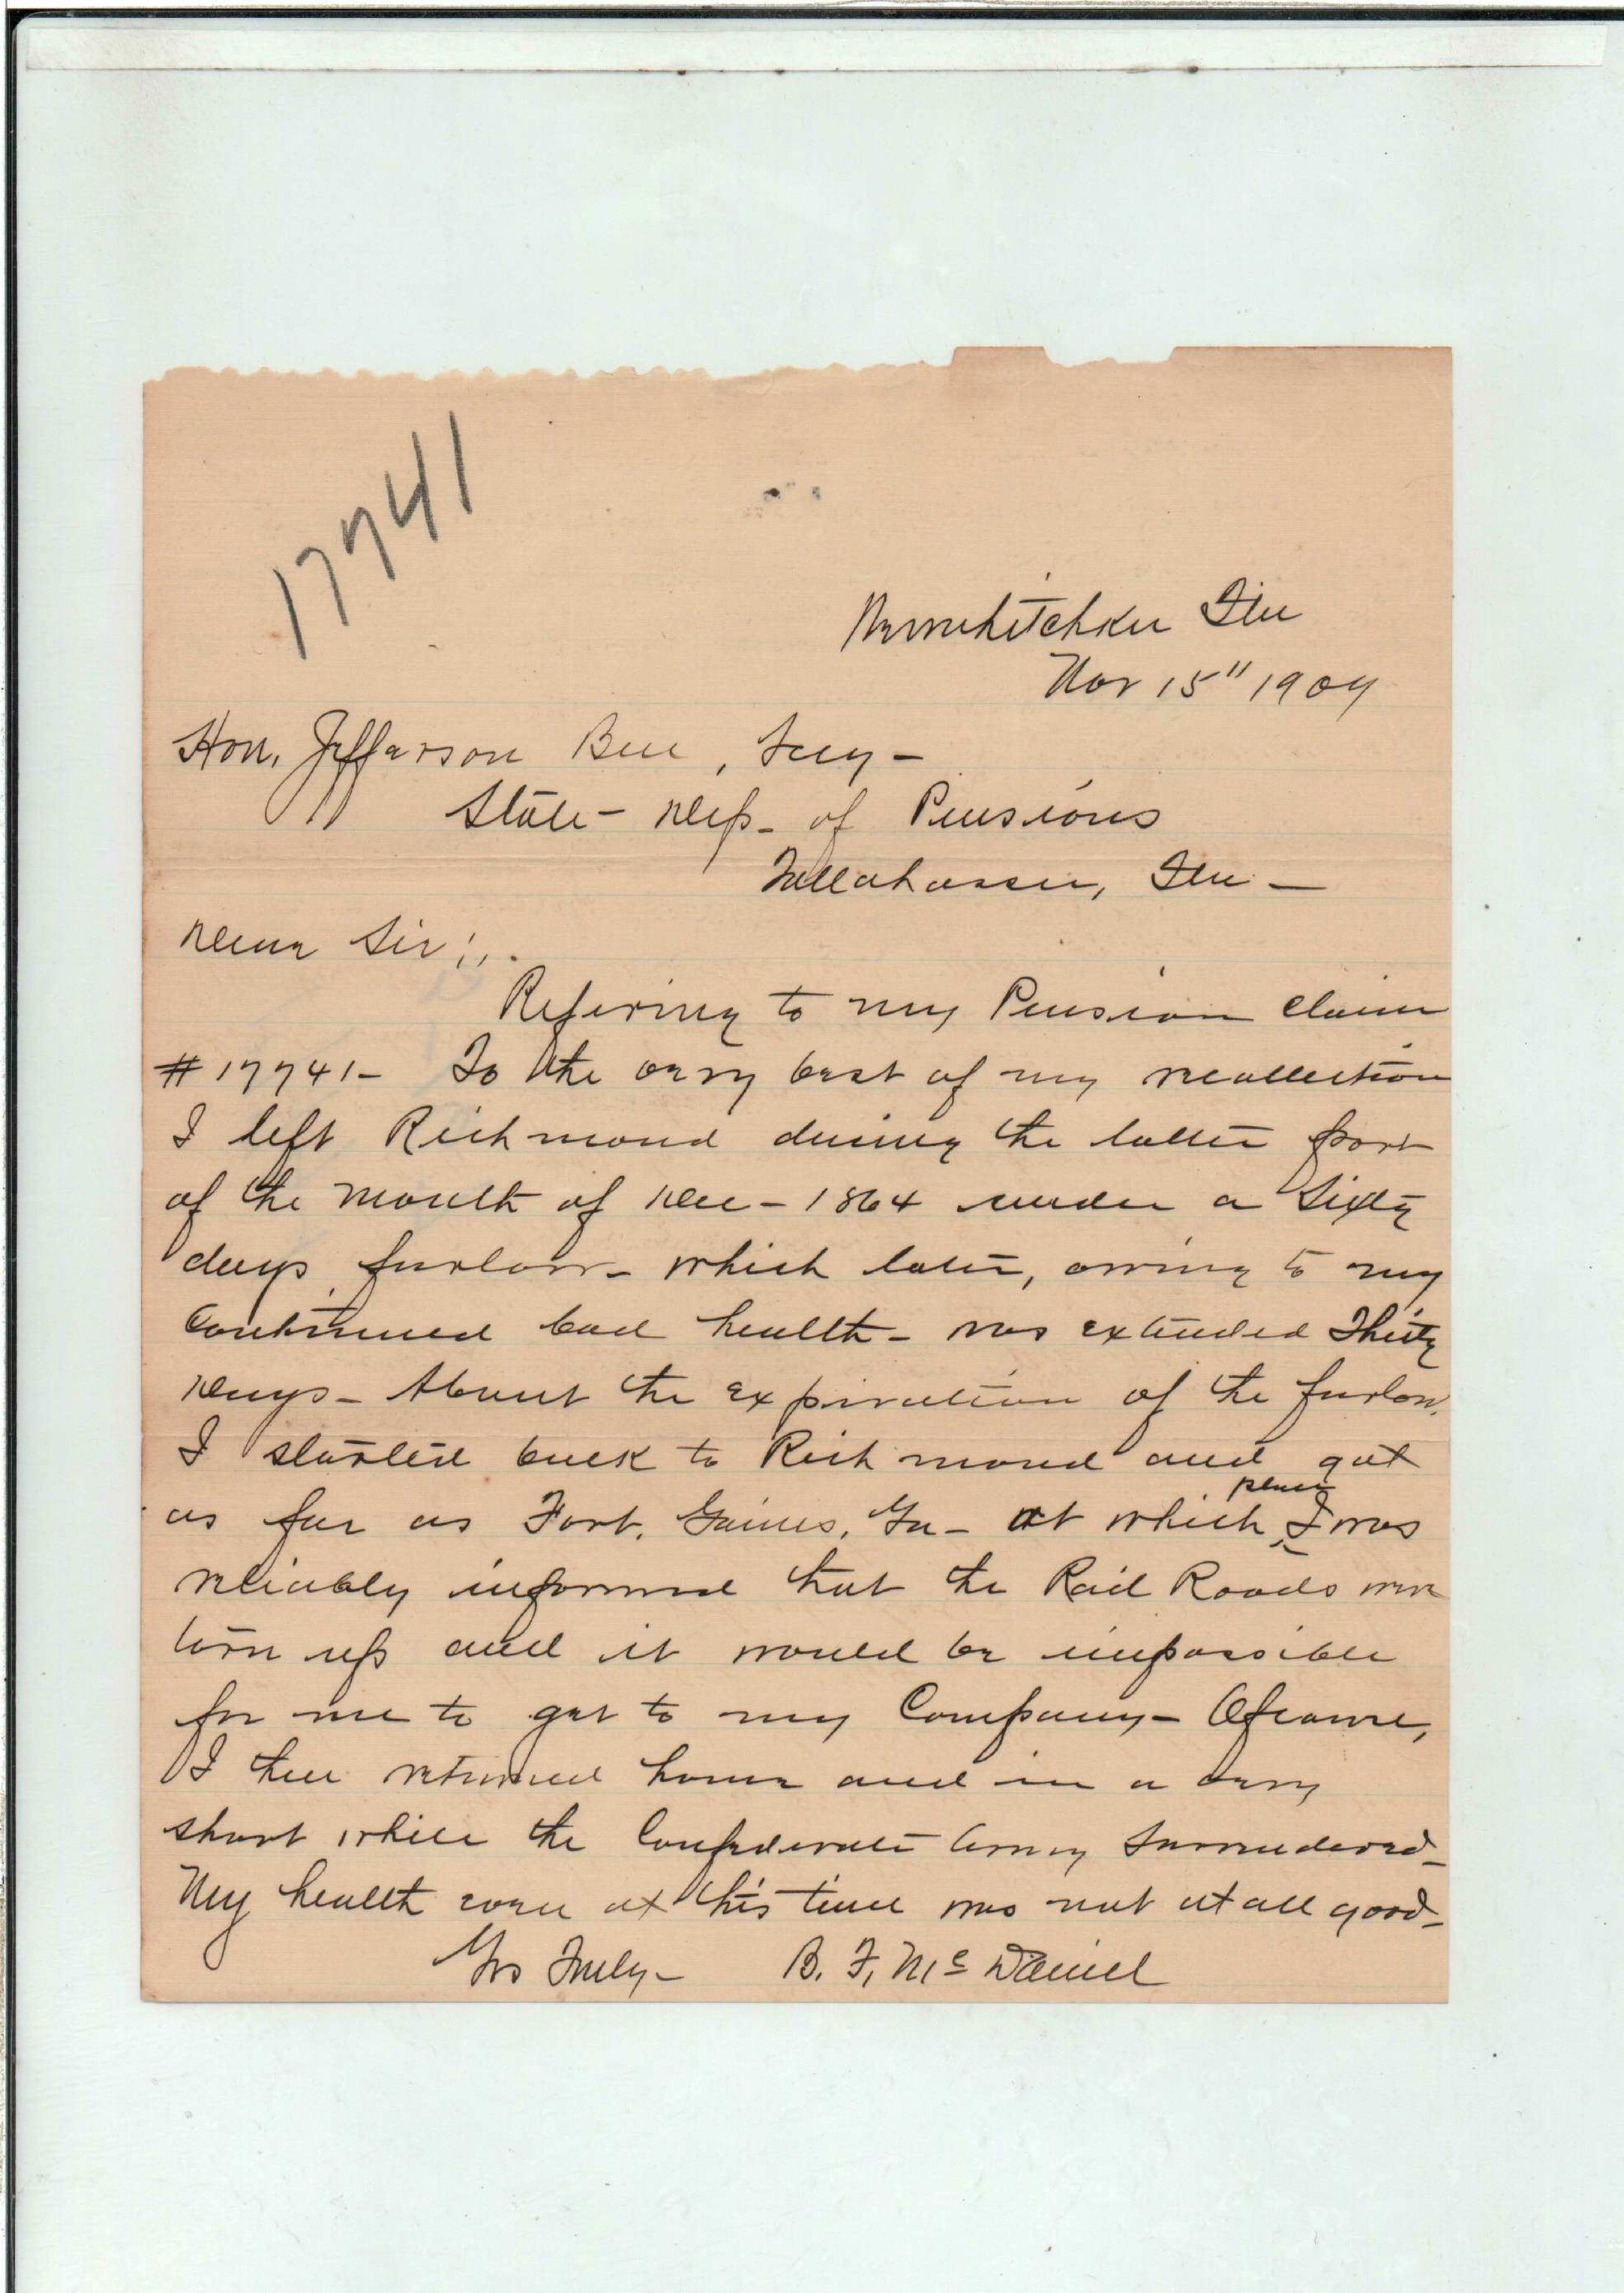 17741
Wewahitchka Fla
Nov 15" 1909
Hon. Jefferson Bell, Secy-
State- Dep- of Pensions
Tallahassee, Fla-
Dear Sir:,.
Refering to my Pension claim
#17741- To the very best of my recollection
I left Richmond during the latter part
of the month of Dec- 1864 under a Sixty
days furlow- which later, owing to my
Continued bad health- was extended Thirty
Days- About the expiration of the furlow,
I started back to Richmond and got
as far as Fort. Gaines, Ga- at which place I was
reliably informed that the Rail Roads were
torn up and it would be impossible
for me to get to my Company- Of course,
I then returned home and in a very
short while the Confederate Army Surrendered-
My health even at this time was not at all good-
Yrs Truly- B. F. McDaniel